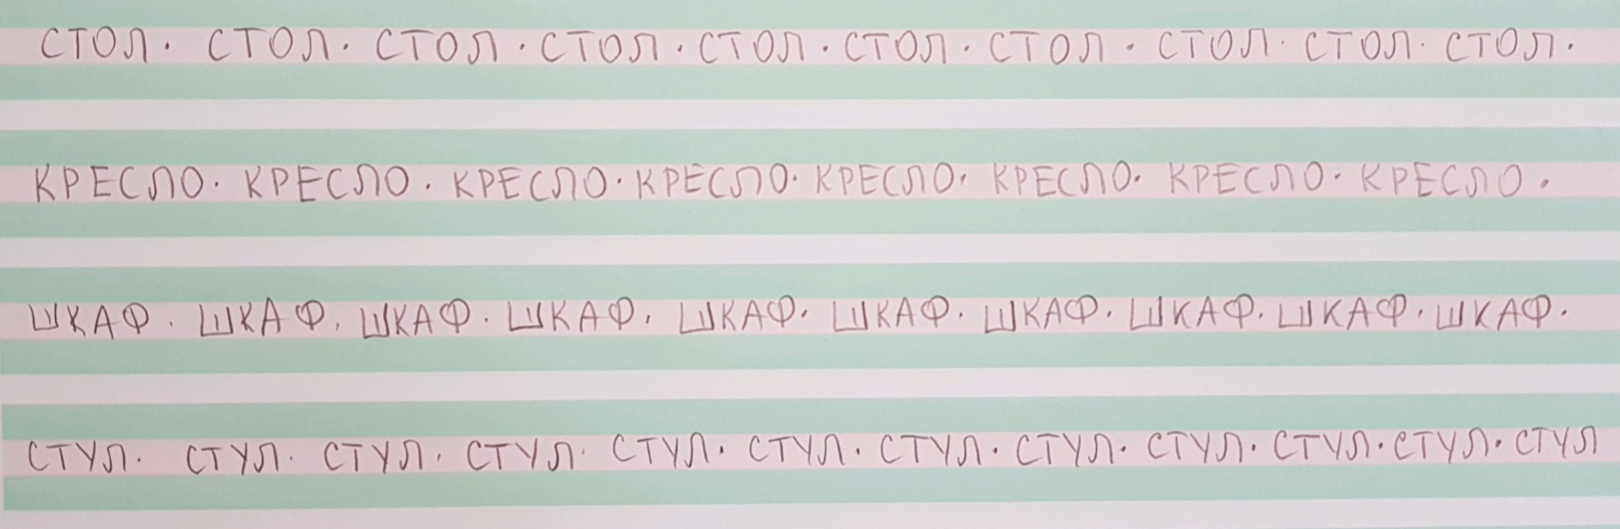 СТОЛ. СТОЛ. СТОЛ. СТОЛ. СТОЛ. СТОЛ. СТОЛ. СТОЛ. СТОЛ. СТОЛ.
КРЕСЛО. КРЕСЛО. КРЕСЛО. КРЕСЛО. КРЕСЛО. КРЕСЛО. КРЕСЛО. КРЕСЛО.
ШКАФ. ШКАФ. ШКАФ. ШКАФ. ШКАФ. ШКАФ. ШКАФ. ШКАФ. ШКАФ. ШКАФ.
СТУЛ. СТУЛ. СТУЛ. СТУЛ. СТУЛ. СТУЛ. СТУЛ. СТУЛ. СТУЛ. СТУЛ. СТУЛ. СТУЛ